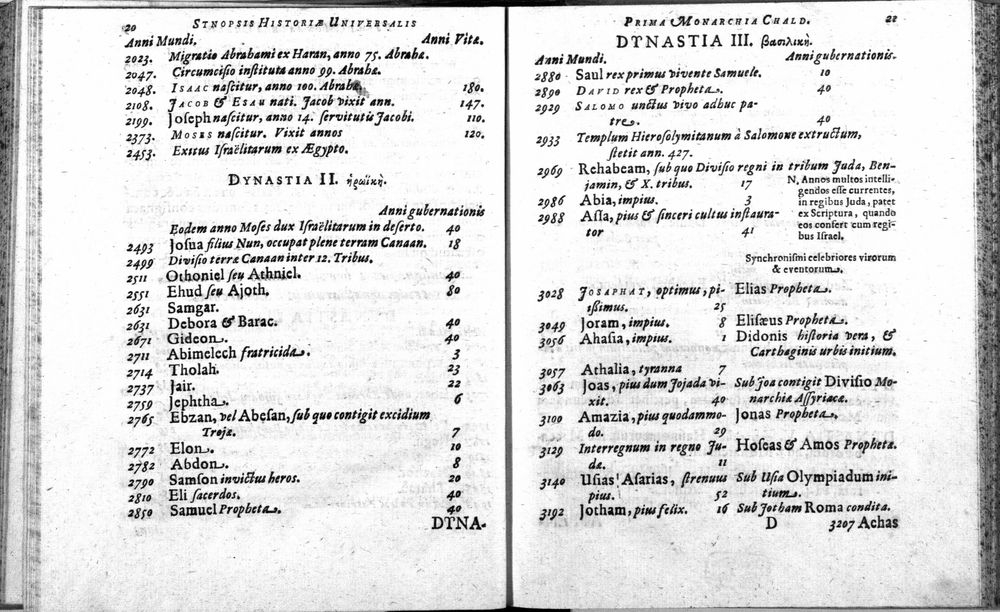 20 SYNOPSIS HISTORIÆ UNIVERSALIS
Anni Mundi. Anni Vitæ.
2023. Migratio Abrahami ex Haran, anno 75. Abrahæ.
2047. Circumcisio instituta anno 99. Abrahæ.
2048. ISAAC nascitur, anno 100. Abrahæ. 180.
2108. JACOB & ESAU nati. Jacob vixit ann. 147.
2199. Joseph nascitur, anno 14. servitutis Jacobi. 110.
2373. MOSES nascitur. Vixit annos 120.
2453. Exitus Israëlitarum ex Ægypto.
DYNASTIA II. ἡρωϊκὴ.
Anni gubernationis
Eodem anno Moses dux Israëlitarum in deserto. 40
2493 Josua filius Nun, occupat plene terram Canaan. 18
2499 Divisio terræ Canaan inter 12. Tribus.
2511 Othoniel seu Athniel. 40
2551 Ehud seu Ajoth. 80
2631 Samgar.
2631 Debora & Barac. 40
2671 Gideon. 40
2711 Abimelech fratricida. 3
2714 Tholah. 23
2737 Jair. 22
2759 Jephtha. 6
2765 Ebzan, vel Abesan, sub quo contigit excidium
Trojæ. 7
2772 Elon. 10
2782 Abdon. 8
2790 Samson invictus heros. 20
2810 Eli sacerdos. 40
2850 Samuel Propheta. 40
DYNA-
PRIMA MONARCHIA CHALD. 21
DYNASTIA III. βασιλικὴ.
Anni Mundi. Anni gubernationis.
2880 Saul rex primus vivente Samuele. 10
2890 DAVID rex & Propheta. 40
2929 SALOMO unctus vivo adhuc pa-
tre. 40
2933 Templum Hierosolymitanum à Salomone extructum,
stetit ann. 427.
2969 Rehabeam, sub quo Divisio regni in tribum Juda, Ben-
jamin, & X. tribus. 17
2986 Abia, impius. 3
2988 Assa, pius & sinceri cultus instaura-
tor 41
N. Annos multos intelli-
gendos esse currentes,
in regibus Juda, patet
ex Scriptura, quando
eos confert cum regi-
bus Israel.
Synchronismi celebriores virorum
& eventorum.
3028 JOSAPHAT, optimus, pi- Elias Propheta.
issimus. 25
3049 Joram, impius. 8 Elisæus Propheta.
3056 Ahasia, impius. 1 Didonis historia vera, &
Carthaginis urbis initium.
3057 Athalia, tyranna 7
3063 Joas, pius dum Jojada vi- Sub Joa contigit Divisio Mo-
xit. 40 narchiæ Assyriacæ.
3100 Amazia, pius quodammo- Jonas Propheta.
do. 29
3129 Interregnum in regno Ju- Hoseas & Amos Prophetæ.
dæ. 11
3140 Usias Asarias, strenuus Sub Usia Olympiadum ini-
pius. 52 tium.
3192 Jotham, pius felix. 16 Sub Jotham Roma condita.
D 3207 Achas